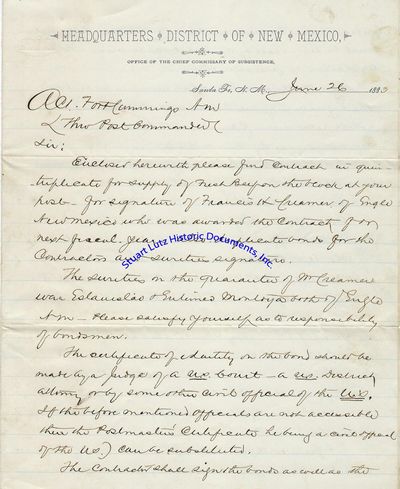 HEADQUARTERS DISTRICT OF NEW MEXICO,
OFFICE OF THE CHIEF COMMISSARY OF SUBSISTENCE,
Santa Fe, N. M., June 26 1883
Fort Cummings N M
Thro Post Commander
Sir:
Enclosed herewith please find Contract in quin-
triplicate for supply of Fresh Beef on the block at your
post - for signature of Francis H Creamer of Engle
New Mexico who was awarded the Contract for
next fiscal year bonds for the
Contractors and sureties signatures.
Stuart Lutz Historic Documents, Inc.
The sureties on the guarantee of Mr Creamer
were Estanislao & Montoya both of Engle
N M - Please satisfy yourself as to responsibility
of bondsmen.
The certificate of identity on the bond should be
made by a Judge of a U.S. Court - a U.S. District
Attorney or by some other civil official of the U.S.
If the before mentioned officials are not accessible
then the Postmasters Certificate (he being a civil official
of the US) can be substituted.
The Contractor shall sign the bonds as well as the